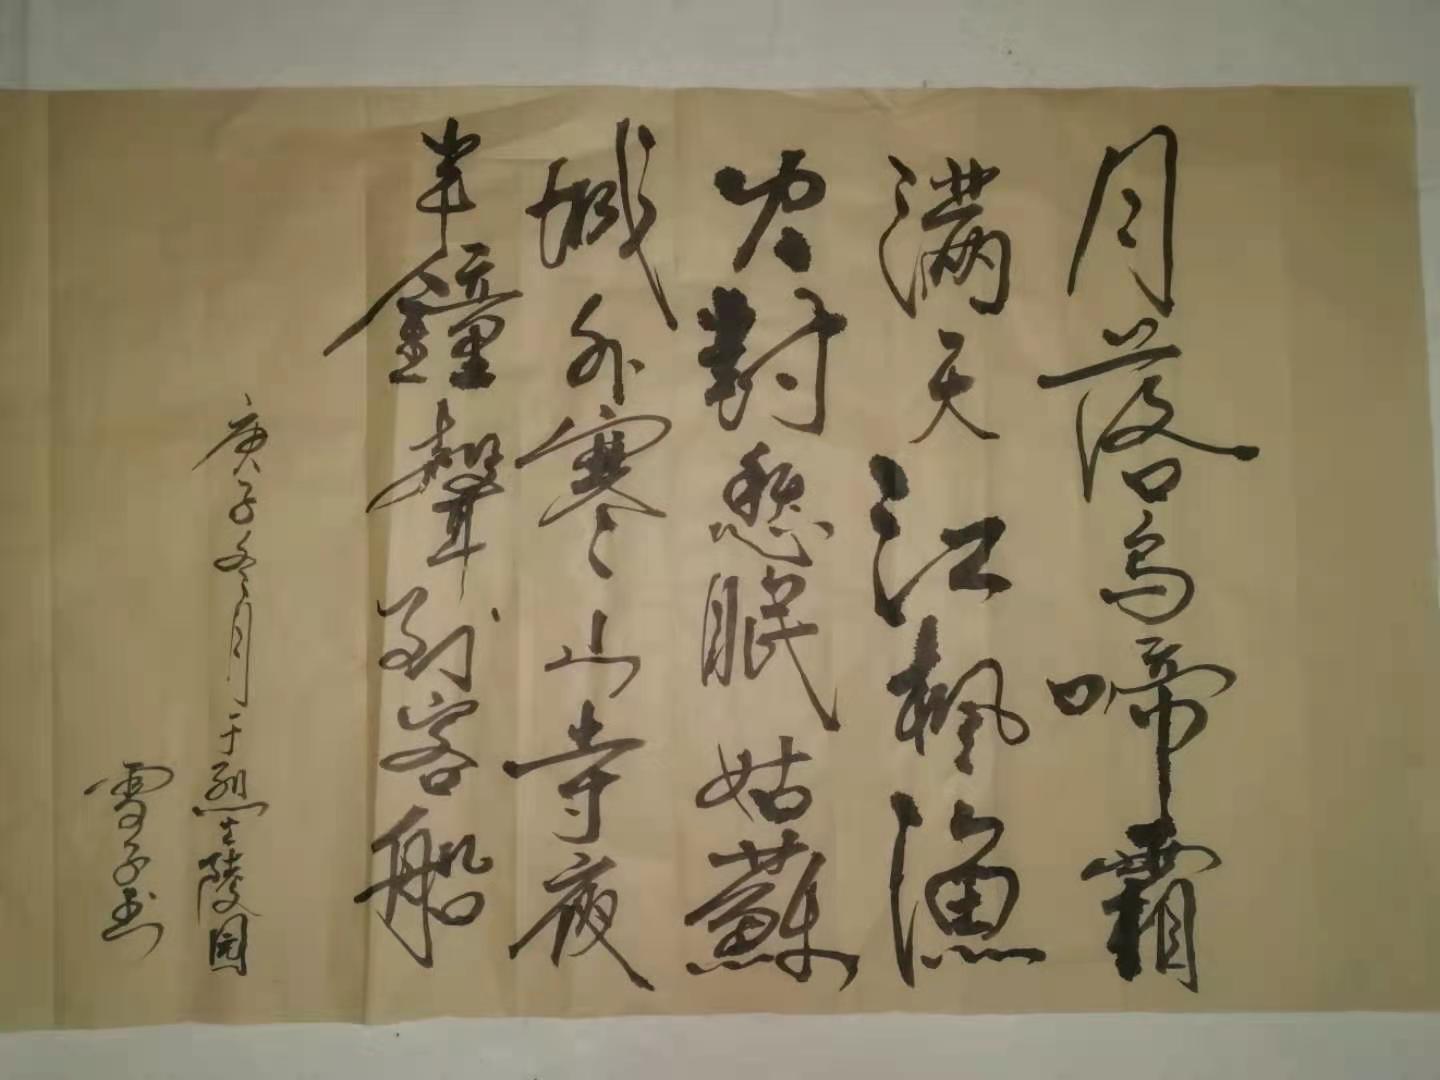 月落烏啼霜
满天江楓漁
火對愁眠姑蘇
城外寒山寺夜
半鐘聲到客船
庚子冬月于烈士陵园
雪子玉